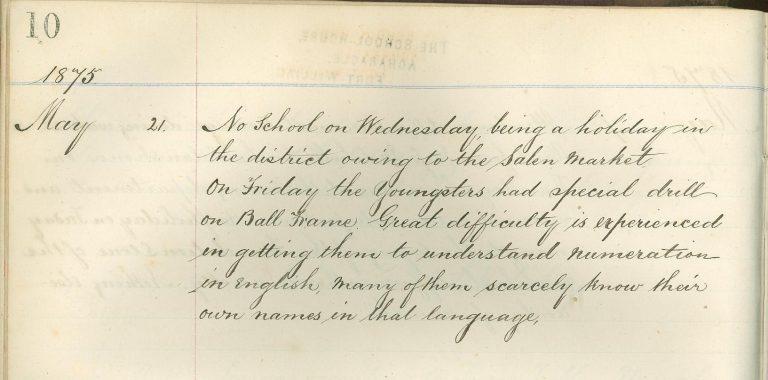 10
1875
May 21. No School on Wednesday, being a holiday in
the district owing to the Salen Market.
On Friday the Youngsters had special drill
on Ball Frame. Great difficulty is experienced
in getting them to understand numeration
in English, many of them scarcely know their
own names in that language,
THE SCHOOL HOUSE,
ACHARACLE,
FORT WILLIAM